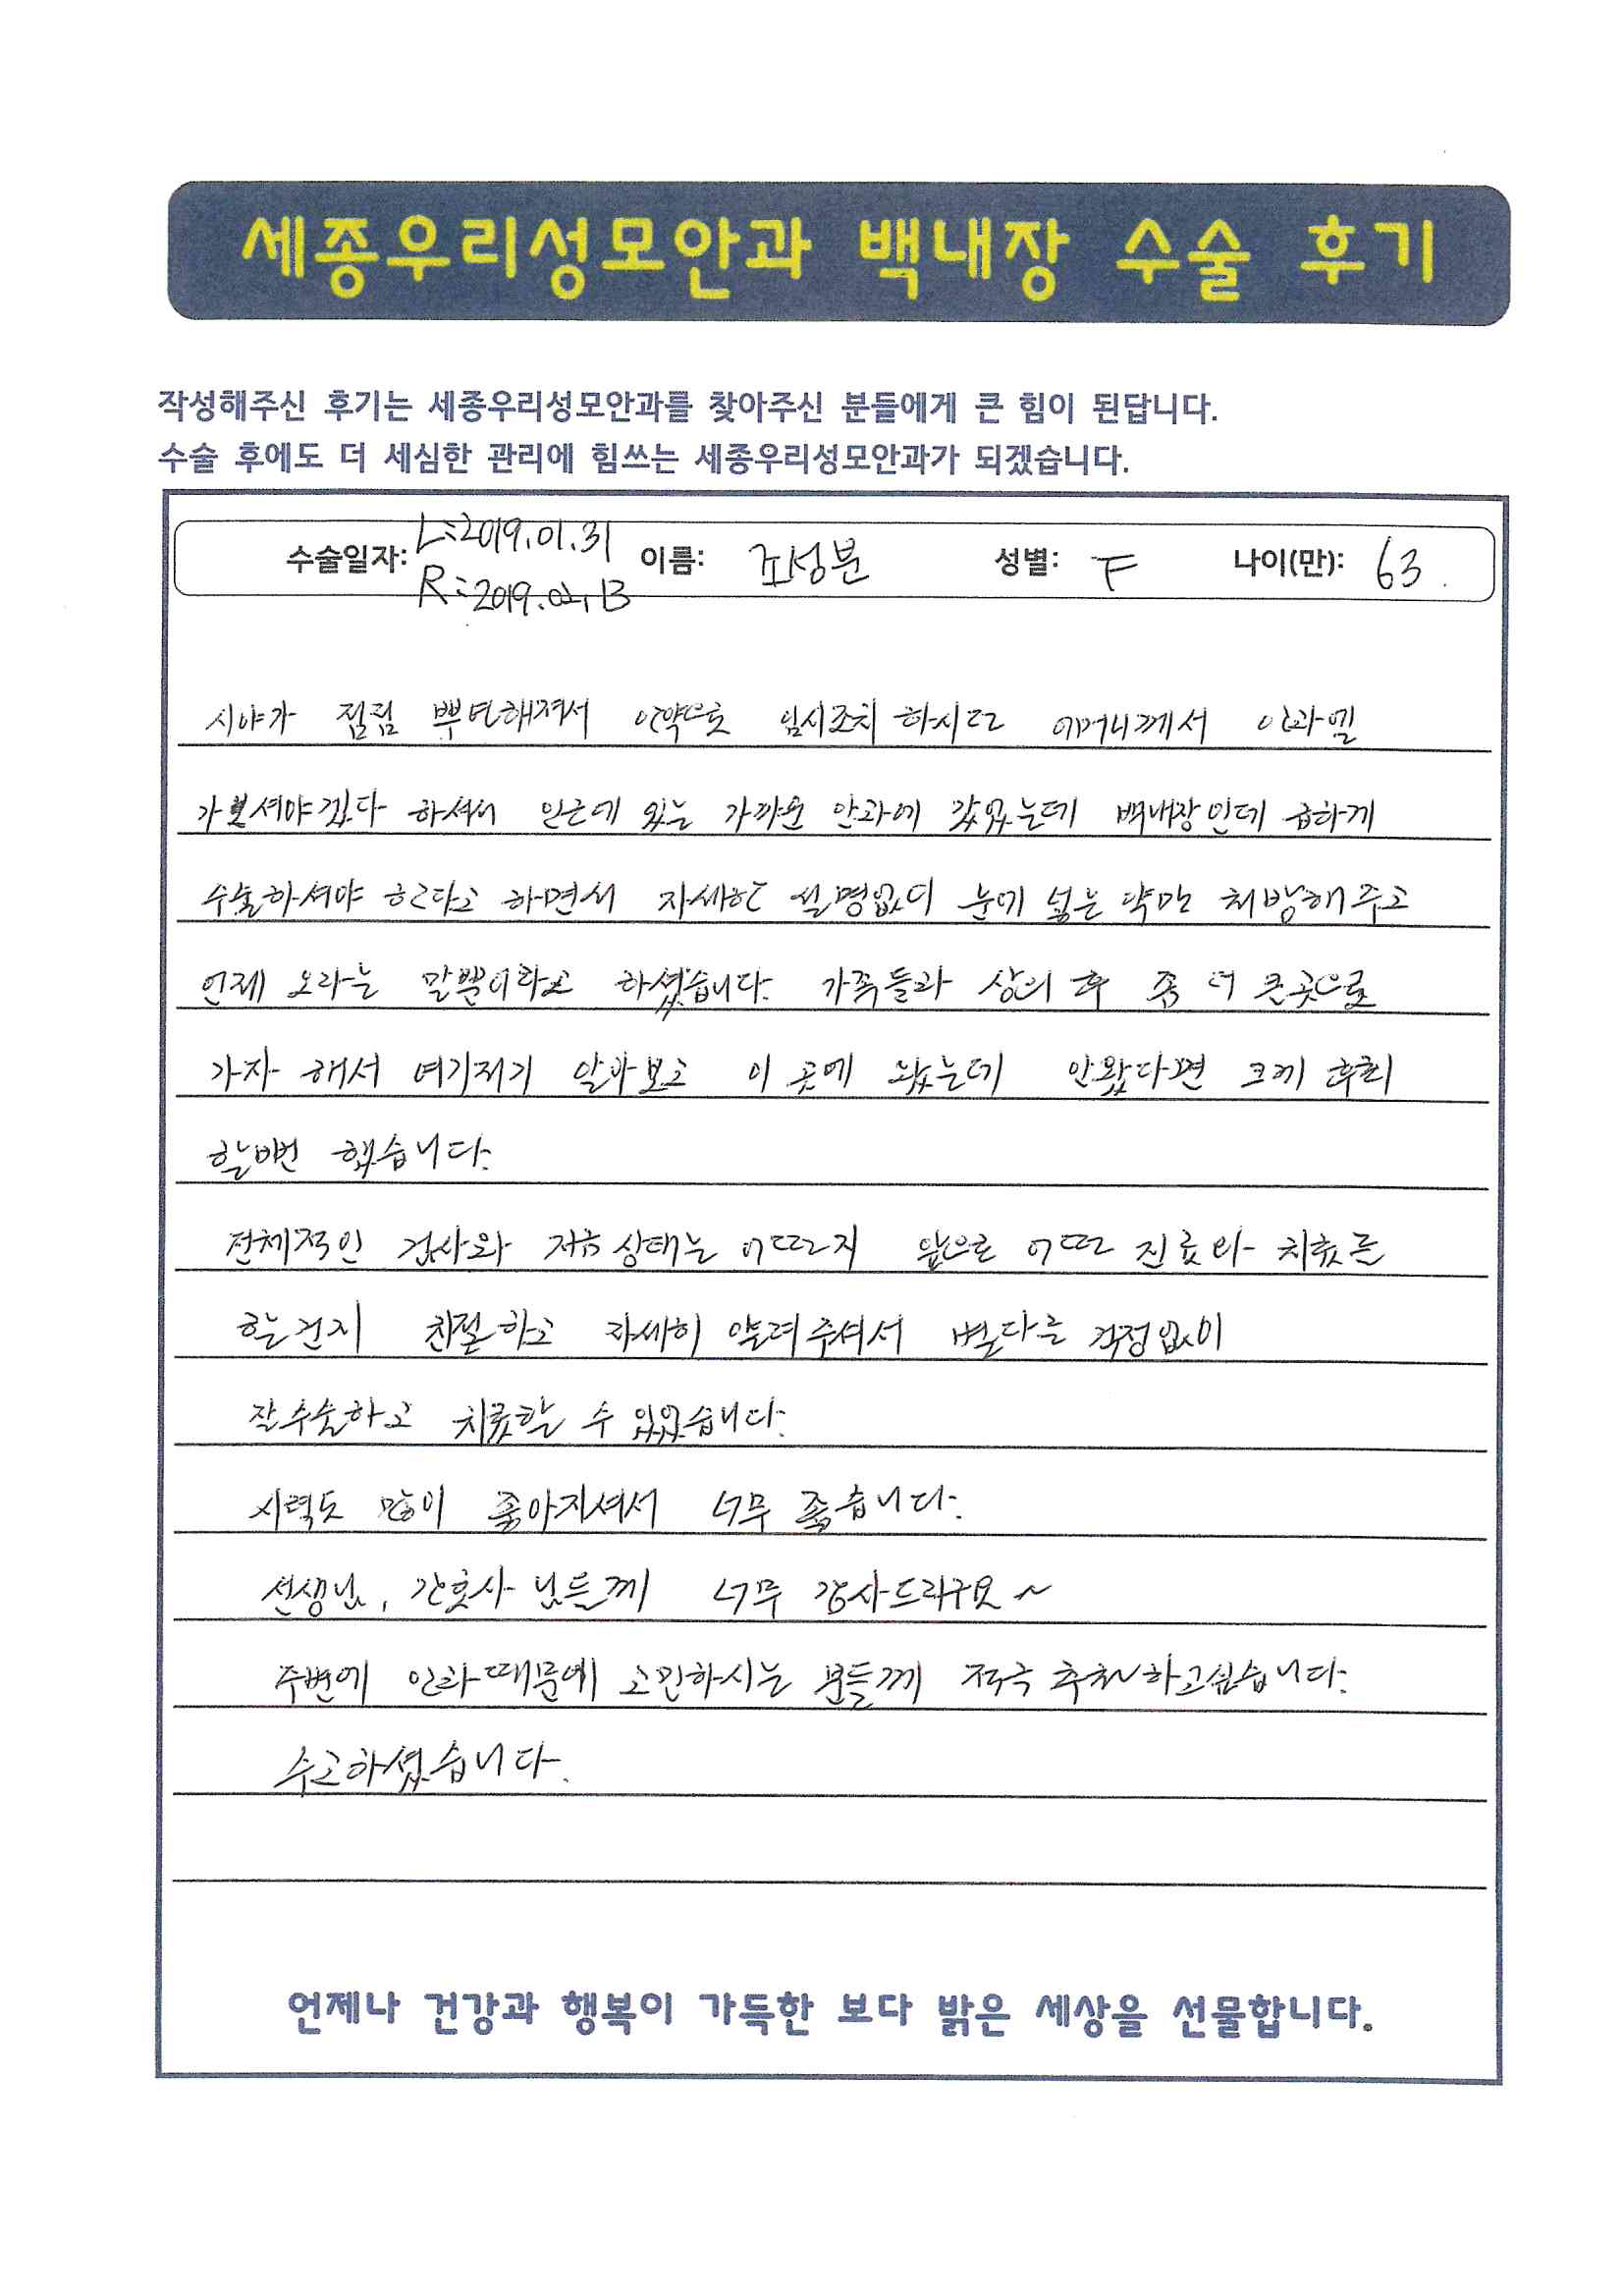 세종우리성모안과 백내장 수술 후기
작성해주신 후기는 세종우리성모안과를 찾아주신 분들에게 큰 힘이 된답니다.
수술 후에도 더 세심한 관리에 힘쓰는 세종우리성모안과가 되겠습니다.
수술일자: L:2019.01.31 R:2019.02.13 이름: 조성분 성별: F 나이(만): 63.
시야가 점점 뿌연해져서 안약으로 임시조치 하시던 어머니께서 안과엘
가보셔야겠다 하셔서 인근에 있는 가까운 안과에 갔었는데 백내장인데 급하게
수술하셔야 한다고 하면서 자세한 설명없이 눈에 넣는 약만 처방해주고
언제 오라는 말뿐이라고 하셨습니다. 가족들과 상의 후 좀 더 큰곳으로
가자 해서 여기저기 알아보고 이 곳에 왔는데 안왔다면 크게 후회
할뻔 했습니다.
전체적인 검사와 지금 상태는 어떤지 앞으로 어떤 진료와 치료를
할건지 친절하고 자세히 알려주셔서 별다른 걱정없이
잘수술하고 치료할 수 있었습니다.
시력도 많이 좋아지셔서 너무 좋습니다.
선생님, 간호사 님들께 너무 감사드리구요~
주변에 안과때문에 고민하시는 분들께 적극 추천하고싶습니다.
수고하셨습니다.
언제나 건강과 행복이 가득한 보다 밝은 세상을 선물합니다.